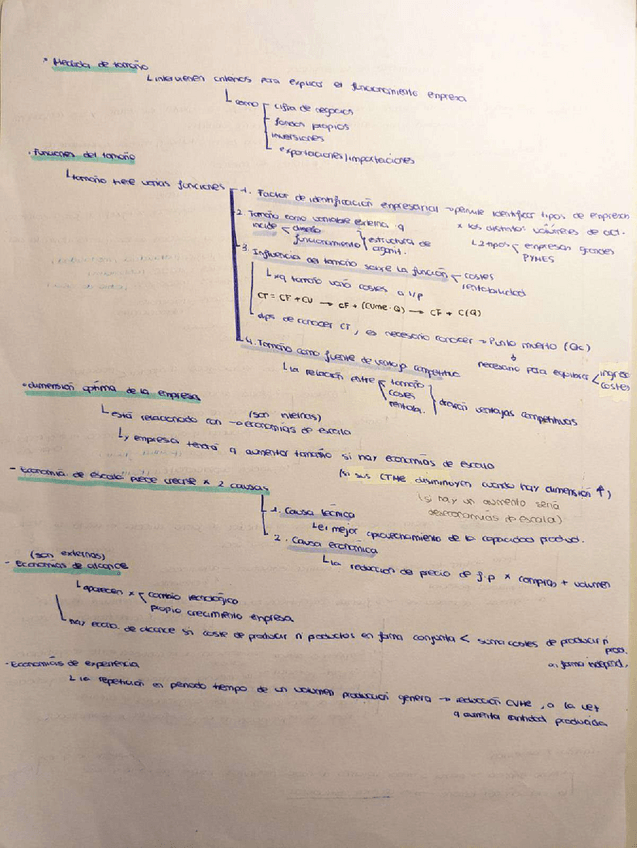 * Medida de tamaño
↳ intervienen criterios para explicar el funcionamiento empresa
↳ como cifra de negocios
fondos propios
inversiones
exportaciones/importaciones
· Funciones del tamaño
↳ tamaño tiene varias funciones
1. Factor de identificación empresarial → permite identificar tipos de empresa
x los distintos volúmenes de act.
↳ 2 tipos empresas grandes
PYMES
2. Tamaño como variable externa q
incide diseño
funcionamiento estructura de
3. Influencia del tamaño sobre la función costes
rentabilidad
↳ xq tamaño varía costes a l/p
CT = CF + CU → CF + (CUme · Q) → CF + C(Q)
de conocer CT, es necesario conocer → Punto muerto (Qc)
↓
necesario para equilibrar ingreso
costes
4. Tamaño como fuente de ventaja competitiva
↳ la relación entre tamaño
costes
rentab.
ventajas competitivas
· dimensión óptima de la empresa
(son internas)
↳ está relacionado con → economías de escala
↳ y empresa tendrá q aumentar tamaño si hay economías de escala
(si sus CTMe disminuyen cuando hay dimensión ↑)
(si hay un aumento sería
deseconomías de escala)
- Economía de escala puede crearse x 2 causas
1. Causa técnica
↳ el mejor aprovechamiento de la capacidad product.
2. Causa económica
↳ la reducción del precio de f.p x compras + volumen
(son externas)
- Economías de alcance
↳ aparecen x cambio tecnológico
propio crecimiento empresa
↳ hay econo. de alcance si coste de producir n productos en forma conjunta < suma costes de producir n
prod.
en forma independ.
- Economías de experiencia
↳ la repetición en período tiempo de un volumen producción genera → reducción CUMe, a la vez
q aumenta cantidad producida